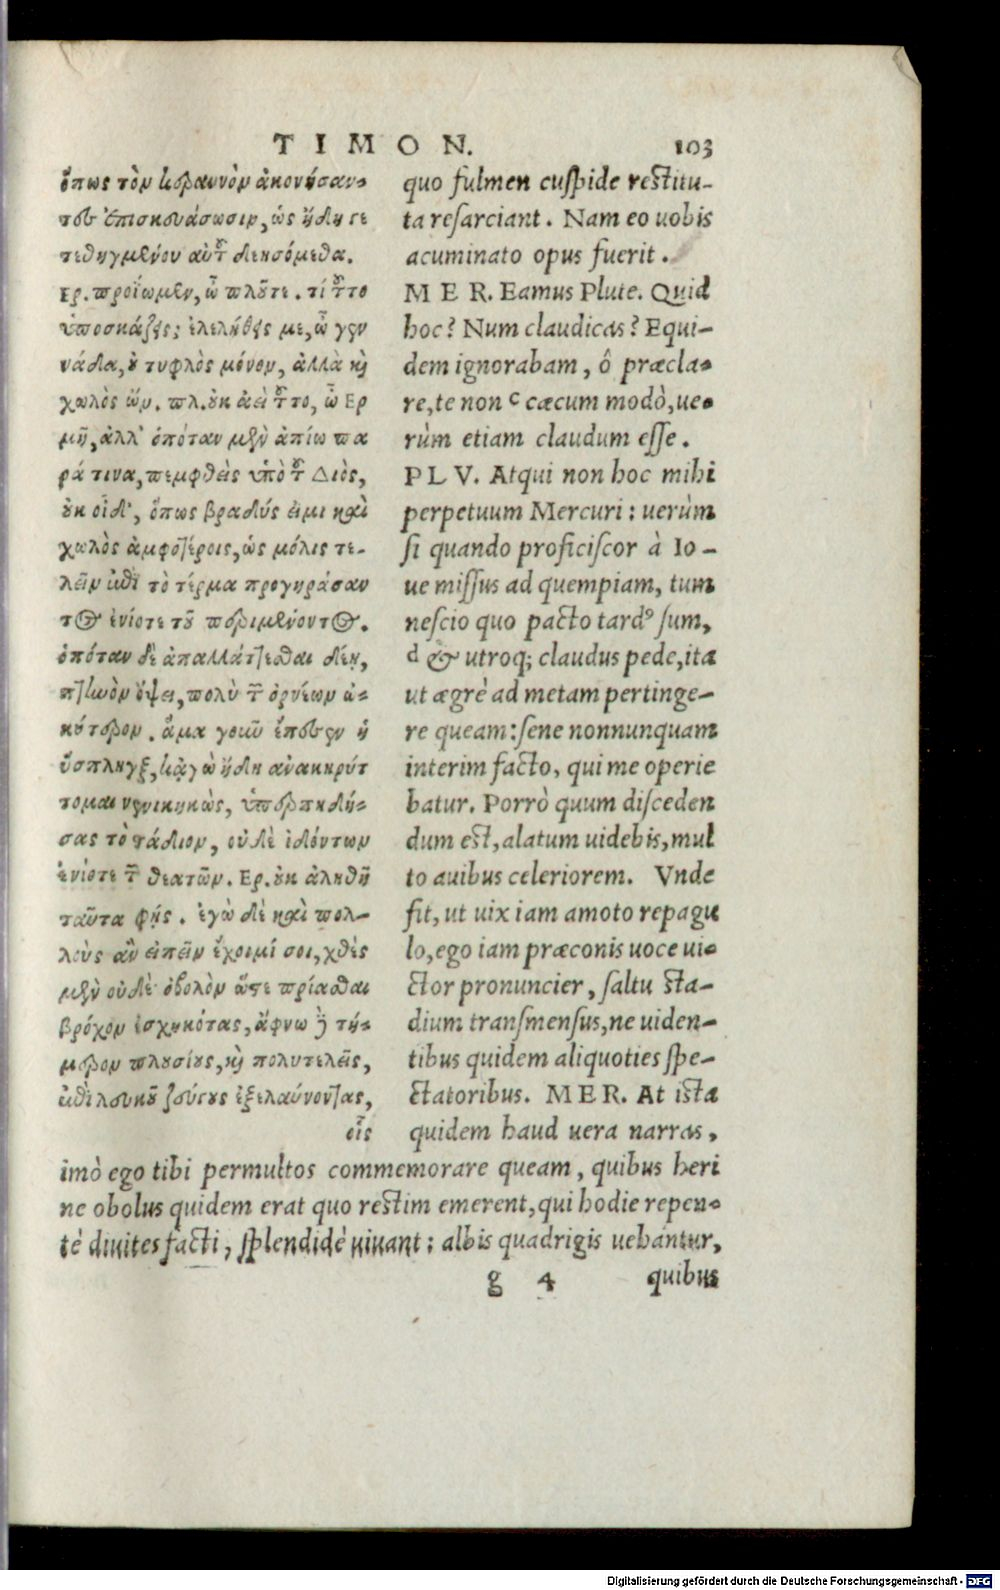 TIMON. 103
ὅπως τὸν κεραυνὸν ἀκονήσαν-
τες ἐπισκευάσωσιν, ὡς ἤδη γε
τεθηγμένου αὐτοῦ δεησόμεθα.
Ερ. προΐωμεν, ὦ πλοῦτε. τί τοῦτο
ὑποσκάζεις; ἐλελήθεις με, ὦ γεν
νάδα, οὐ τυφλὸς μόνον, ἀλλὰ καὶ
χωλὸς ὤν. πλ. οὐκ ἀεὶ τοῦτο, ὦ Ερ
μῆ, ἀλλ' ὁπόταν μὲν ἀπίω πα
ρά τινα, πεμφθεὶς ὑπὸ τοῦ Διὸς,
οὐκ οἶδ', ὅπως βραδύς εἰμι καὶ
χωλὸς ἀμφοτέροις, ὡς μόλις τε-
λεῖν ἐπὶ τὸ τέρμα προγηράσαν
τος ἐνίοτε τοῦ περιμένοντος.
ὁπόταν δὲ ἀπαλλάττεσθαι δέῃ,
πτηνὸν ὄψει, πολὺ τῶν ὀρνέων ὠ-
κύτερον. ἅμα γοῦν ἔπεσεν ἡ
ὕσπληγξ, κᾀγὼ ἤδη ἀνακηρύτ
τομαι νενικηκὼς, ὑπερπηδή-
σας τὸ στάδιον, οὐδὲ ἰδόντων
ἐνίοτε τῶν θεατῶν. Ερ. οὐκ ἀληθῆ
ταῦτα φῄς. ἐγὼ δὲ καὶ πολ-
λοὺς ἂν εἰπεῖν ἔχοιμί σοι, χθὲς
μὲν οὐδὲ ὀβολὸν ὥστε πρίασθαι
βρόχον ἐσχηκότας, ἄφνω δὲ τή-
μερον πλουσίους, καὶ πολυτελεῖς,
ἐπὶ λευκοῦ ζεύγους ἐξελαύνοντας,
εἷς
quo fulmen cuspide restitu-
ta resarciant. Nam eo uobis
acuminato opus fuerit.
MER. Eamus Plute. Quid
hoc? Num claudicas? Equi-
dem ignorabam, ô præcla-
re, te non c cæcum modò, ue-
rùm etiam claudum esse.
PLV. Atqui non hoc mihi
perpetuum Mercuri: uerùm
si quando proficiscor à Io-
ue missus ad quempiam, tum
nescio quo pacto tardꝰ sum,
d & utroq; claudus pede, ita
ut ægrè ad metam pertinge-
re queam: sene nonnunquam
interim facto, qui me operie
batur. Porrò quum disceden
dum est, alatum uidebis, mul
to auibus celeriorem. Vnde
fit, ut uix iam amoto repagu
lo, ego iam præconis uoce ui-
ctor pronuncier, saltu sta-
dium transmensus, ne uiden-
tibus quidem aliquoties spe-
ctatoribus. MER. At ista
quidem haud uera narras,
imò ego tibi permultos commemorare queam, quibus heri
ne obolus quidem erat quo restim emerent, qui hodie repen-
tè diuites facti, splendidè uiuant: albis quadrigis uehantur,
g 4 quibus
Digitalisierung gefördert durch die Deutsche Forschungsgemeinschaft - DFG